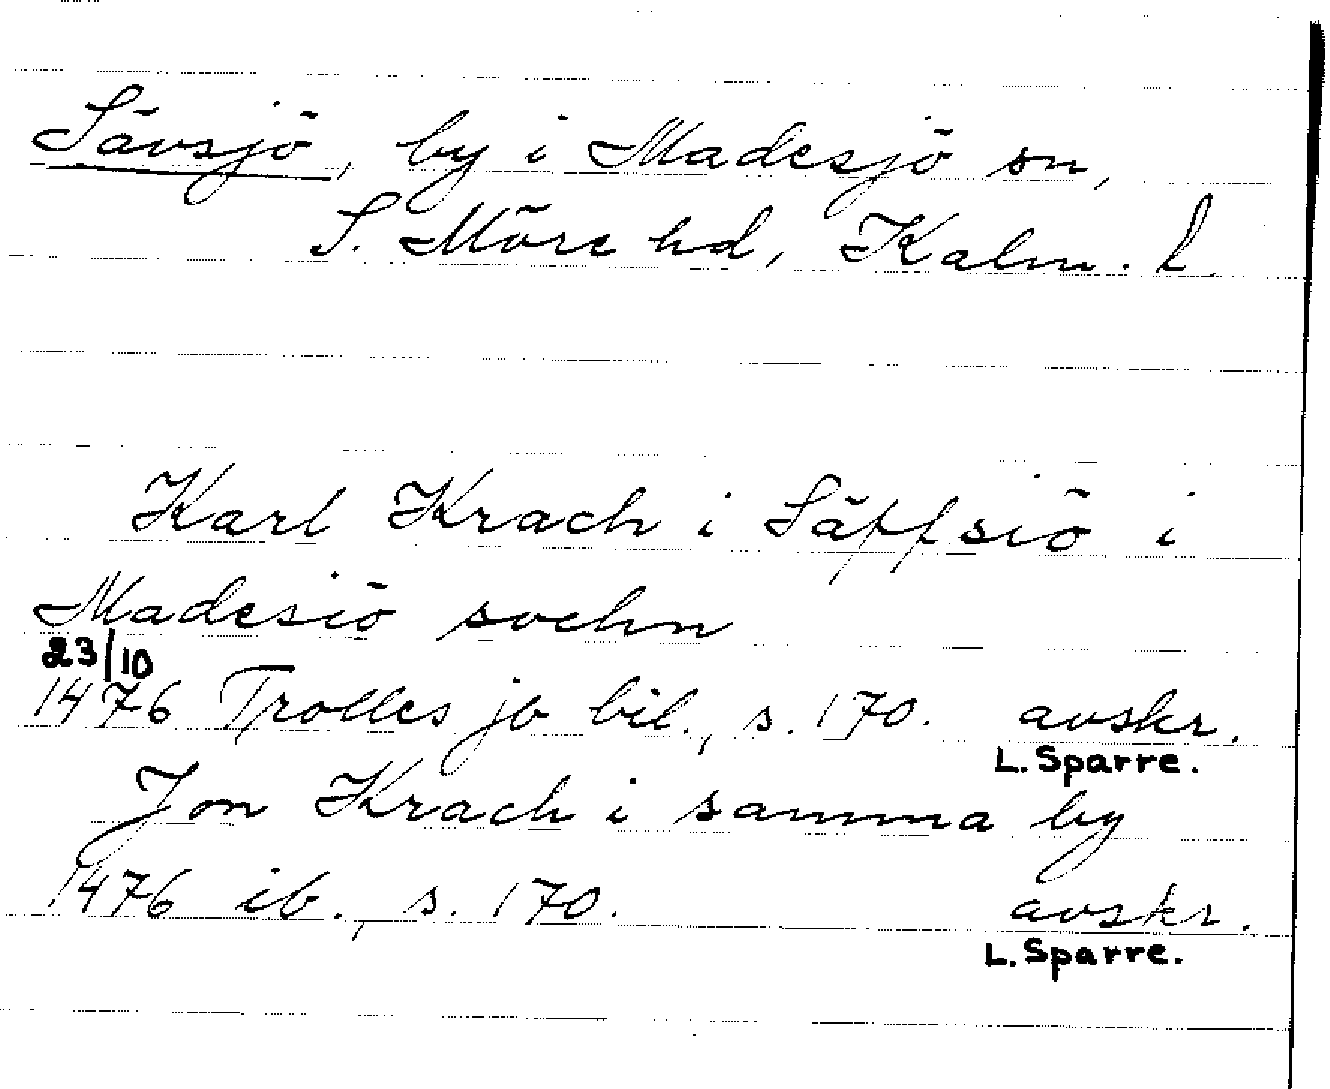 Sävsjö, by i Madesjö sn,
S. Möre hd, Kalm. l.
Karl Krach i Säffsiö i
Madesiö sochn
23/10
1476 Trolles jb bil., s. 170. avskr.
L. Sparre.
Jon Krach i samma by
1476 ib., s. 170. avskr.
L. Sparre.